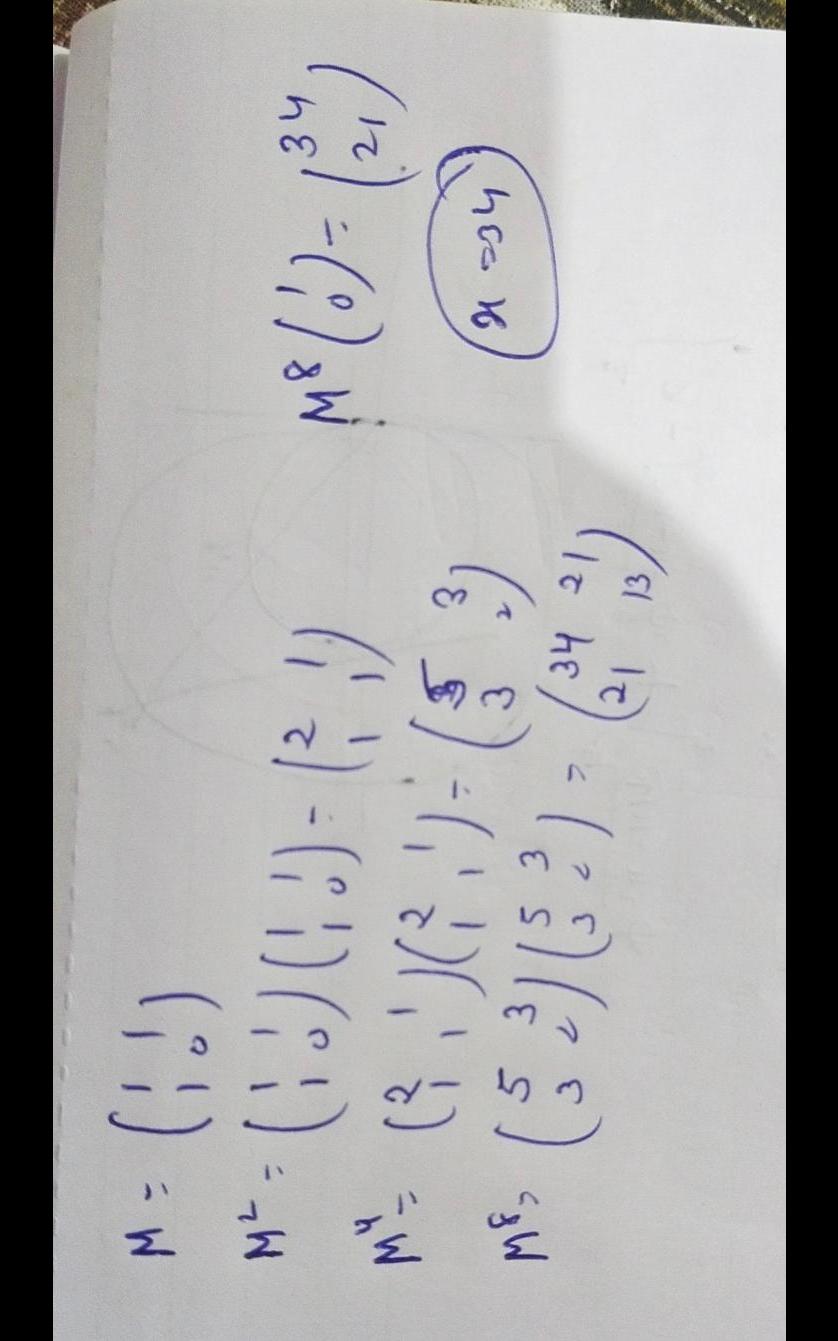 M = (1 1
1 0)
M² = (1 1
1 0)(1 1
1 0) = (2 1
1 1)
M⁴ = (2 1
1 1)(2 1
1 1) = (5 3
3 2)
M⁸ = (5 3
3 2)(5 3
3 2) = (34 21
21 13)
M⁸(1
0) = (34
21)
x = 34